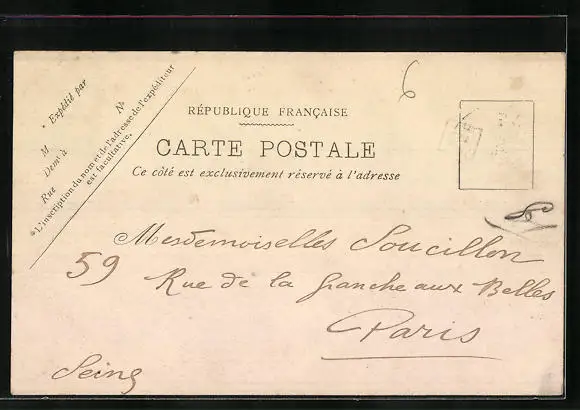 * Expédié par
M.
Dem.t à
Rue
N.o
*L'inscription du nom et de l'adresse de l'expéditeur
est facultative.
6
RÉPUBLIQUE FRANÇAISE
CARTE POSTALE
Ce côté est exclusivement réservé à l'adresse
Mesdemoiselles Soucillon
59 Rue de la Granche aux Belles
Paris
Seine